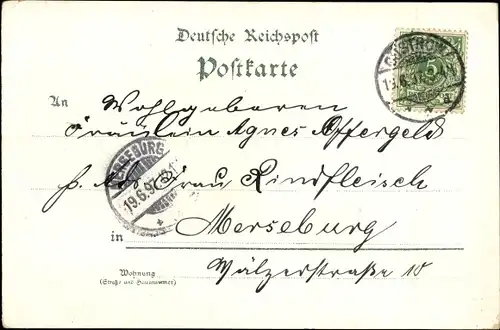 Deutsche Reichspost
Postkarte
An Wohlgeboren
Fräulein Agnes Offergeld
p. Adr. Frau Rindfleisch
in Merseburg
Wohnung
(Straße und Hausnummer)
Wälzerstraße 10
GÜSTROW
5
MERSEBURG
19.6.97